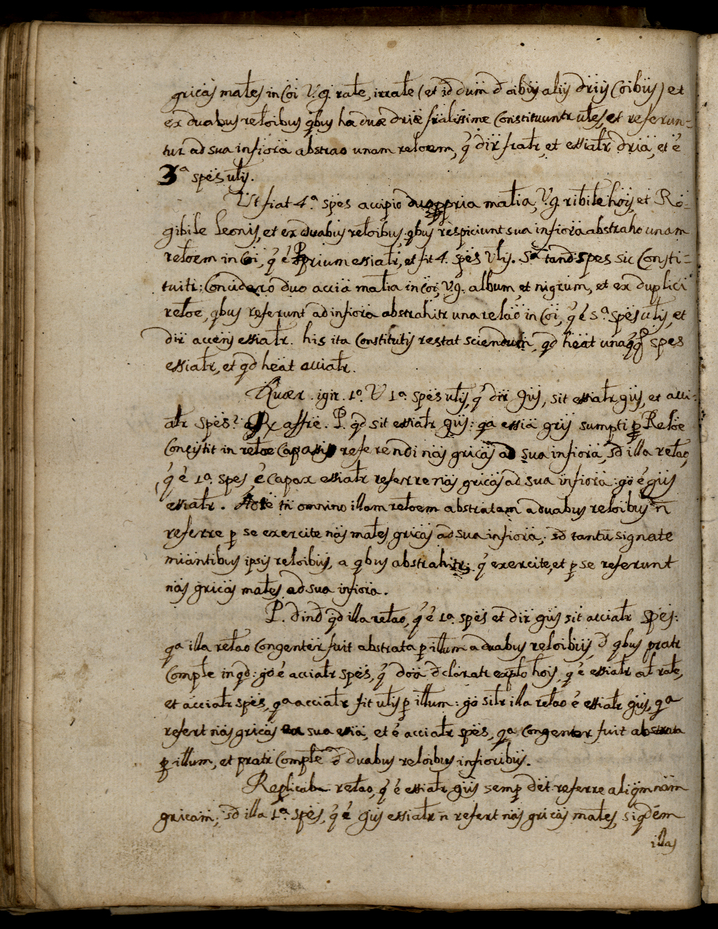 gricas mates in coi V.g. rale, irrale (et id dum d oibus alijs drijs coibus) et
ex duabus reloibus qbus hæ duæ driæ fralissime constituuntr ules, et referun-
tur ad sua infiora abstrao unam reloem, q dir fratr, et essiatr dria, et e
3.ª spes ulis.
Ut fiat 4.ª spes accipio duo ppria matia, V.g. ribile hois, et Ru-
gibile Leonis, et ex duabus reloibus, qbus respiciunt sua infiora abstraho unam
reloem in coi, q e prium essiatr, et fit 4. spes Ulis. 5.ª tand spes sic consti-
tuitr: considero duo accia matia in coi, V.g. album et nigrum, et ex duplici
reloe, qbus referunt ad infiora abstrahitr una relao in coi, q e 5.ª spes ulis, et
dir accens essiatr. his ita constitutis restat sciendum, qd heat unaqq spes
essiatr, et qd heat acciatr.
Quær. igir. 1.º U 1.ª spes ulis, q dir gus, sit essiatr gus, et acci-
atr spes? affre. P. qd sit essiatr gus: qa essia gris sumpti p Reloe
consistit in reloe capassi referendi nas gricas ad sua infiora, sd illa relao,
q e 1.ª spes e capax essiatr referre nas gricas ad sua infiora: go e gus
essiatr. Note tn omnino illam reloem abstratam a duabus reloibus n
referre p se exercite nas mates gricas ad sua infiora; sd tantu signate
miantibus ipsis reloibus, a qbus abstrahitr; q exercite, et p se referunt
nas gricas mates ad sua infiora.
P. dind qd illa relao, q e 1.ª spes et dir gus sit acciatr spes:
qa illa relao congenter fuit abstrata p illum a duabus reloibus d qbus pratr
comple in qd: go e acciatr spes, q doa dclaratr explo hois, q e essiatr al rale,
et acciatr spes, qa acciatr fit ulis p illum: go silr illa relao e essiatr gus, qa
refert nas gricas sua essia, et e acciatr spes, qa congenter fuit abstrata
p illum, et pratr comple d duabus reloibus infioribus.
Replicab relao, q e essiatr gus semp det referre aliqm nam
gricam; sd illa 1.ª spes, q e gus essiatr n refert nas gricas mates, siqdem
illas